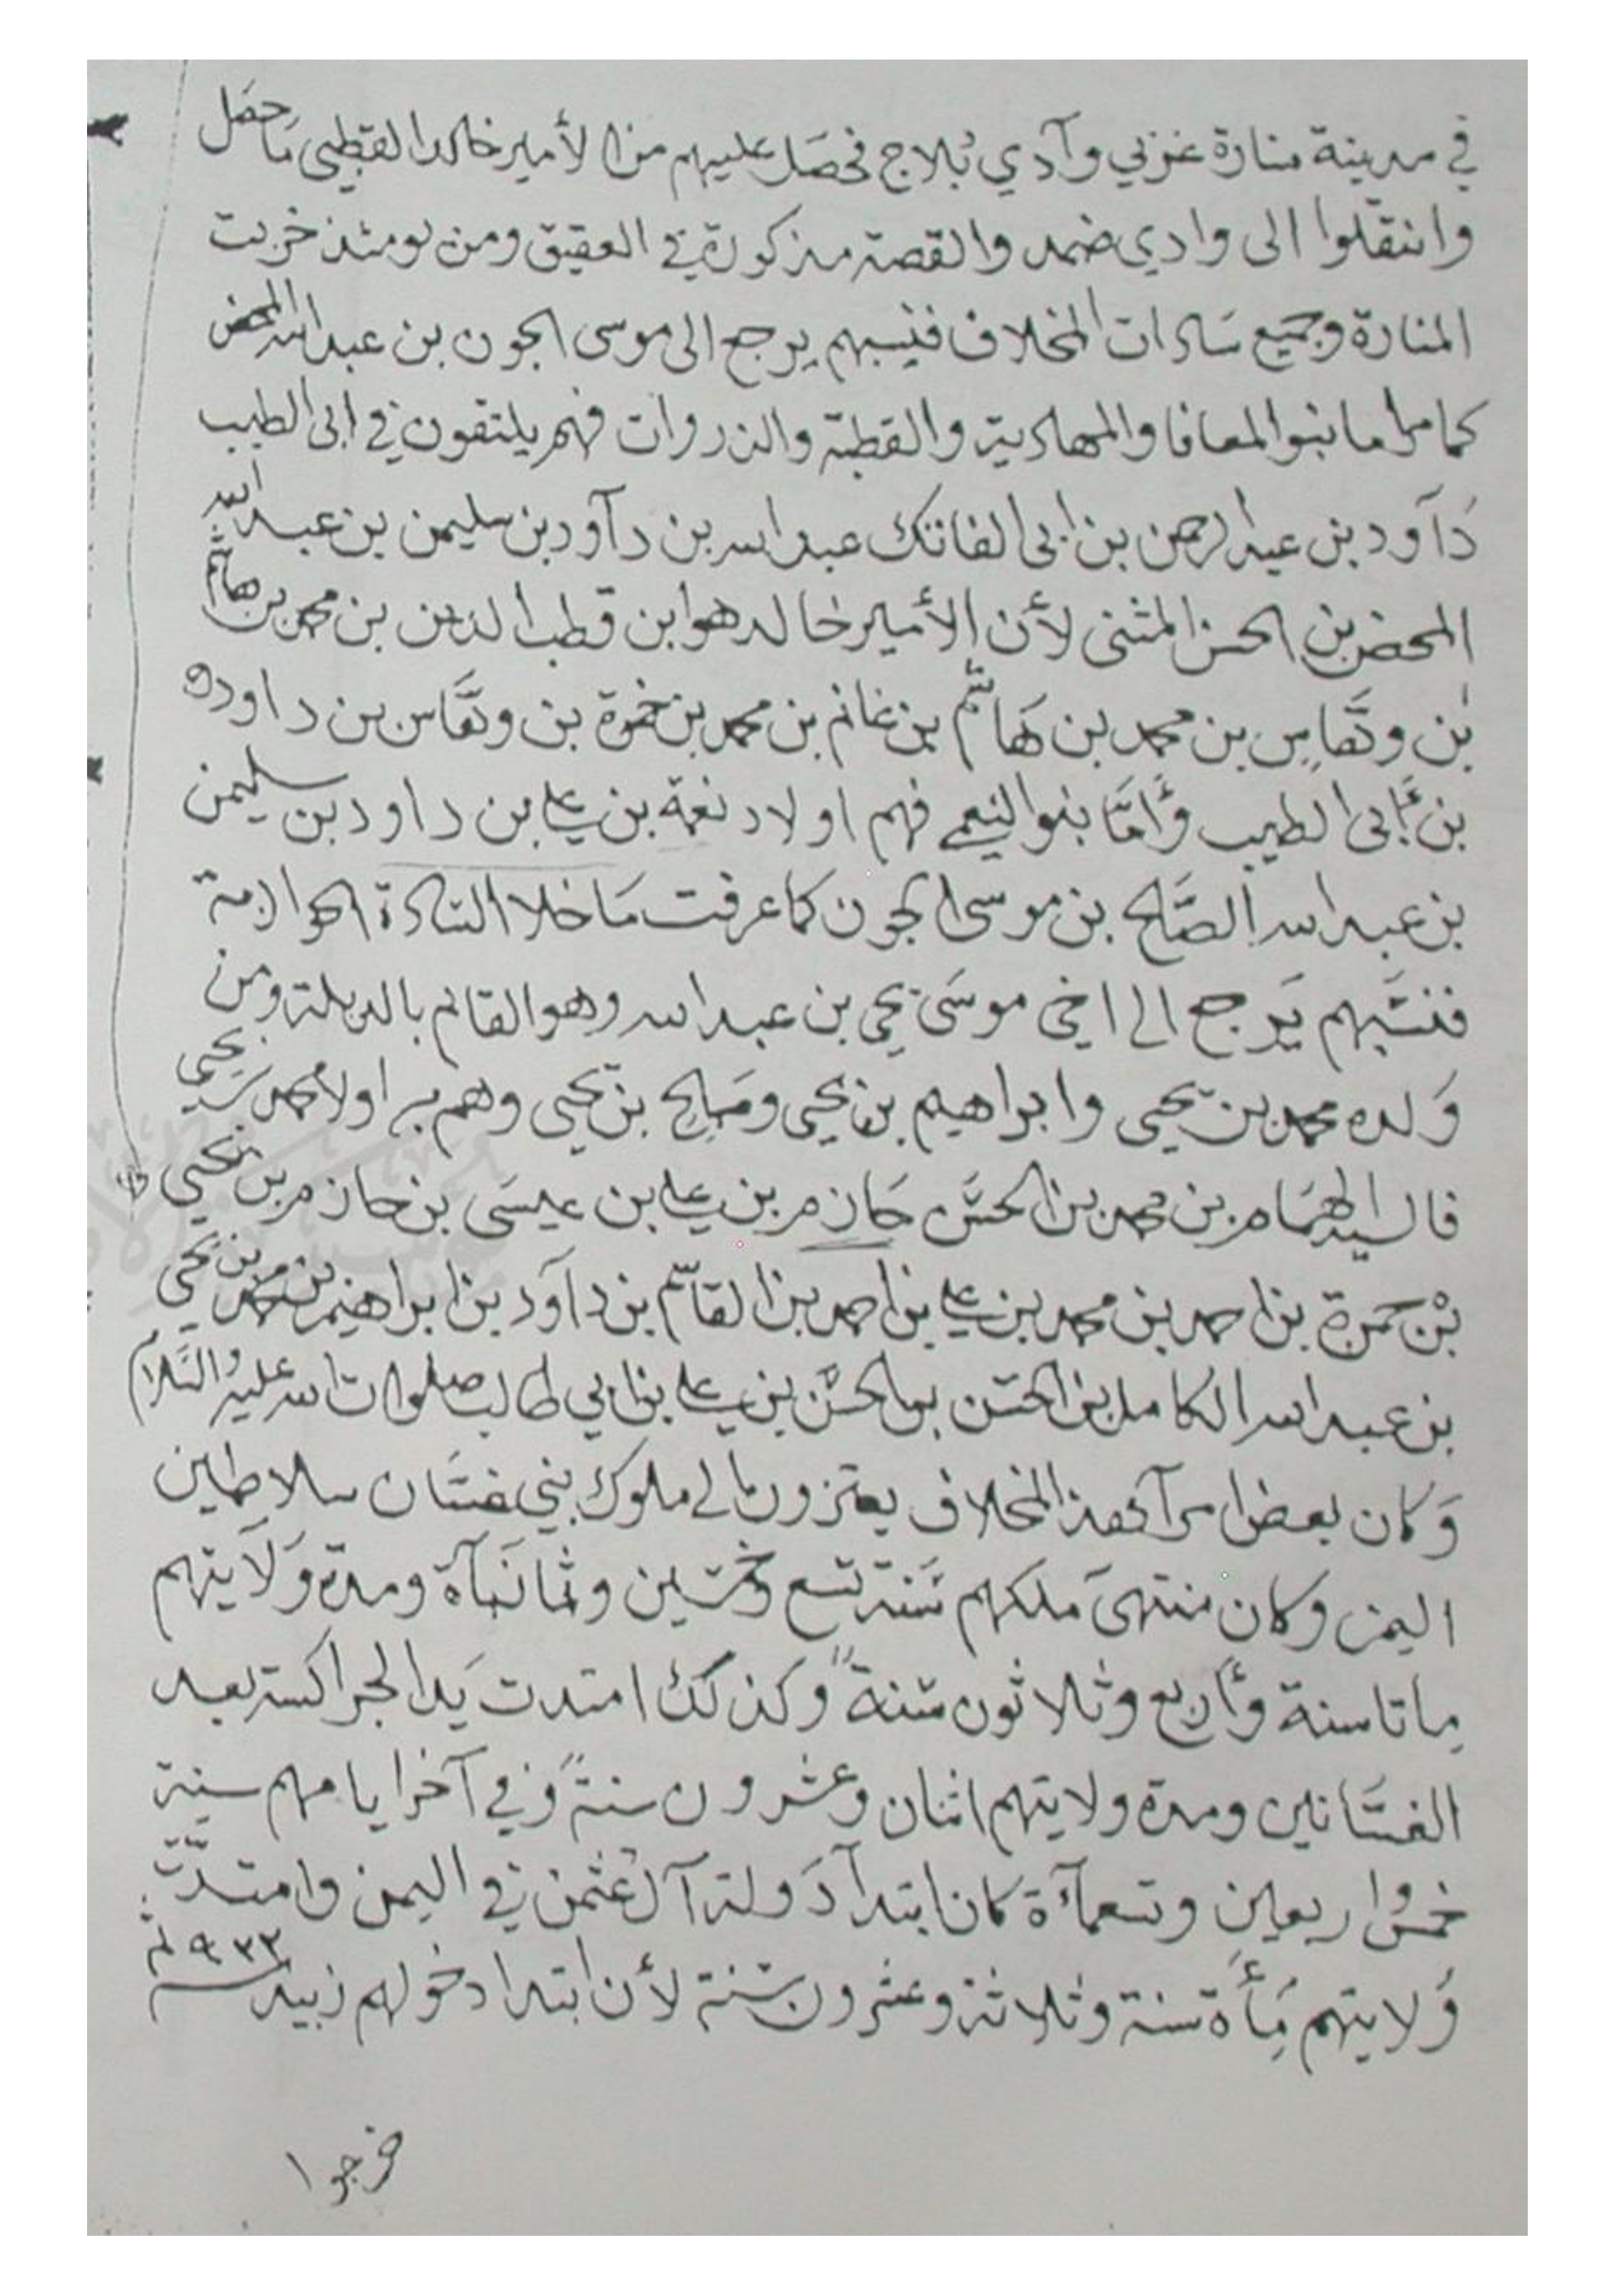 في مدينة منارة غربي وآدي بُلاج فحصَل عليهم من الأمير خالد القطبي مَا حصَل
وانتقلوا الى وادي ضمد والقصة مذكورة في العقيق ومن يومئذ خربت
المنارة وجميع سَادات المخلاف فنسبهم يرجع الى موسى الجون بن عبدالله المحض
كما مر اما بنوا المعافا والمهادية والقطبة والذروات فهم يلتقون في ابى الطيب
دَآود بن عبدالرحمن بن ابى الفاتك عبدالله بن دآود بن سليمن بن عبدالله
المحض بن الحسن المثنى لأن الأمير خالد هو ابن قطب الدين بن محمد بن هاشم
بن وهَّاس بن محمد بن هَاشم بن غانم بن محمد بن حمزة بن وهَّاس بن داود
بن أبى الطيب وأمَّا بنوا النعمي فهم اولاد نعمة بن علي بن داود بن سليمن
بن عبدالله الصَّالح بن موسى الجون كما عرفت مَا خلا السَادة الحوازمة
فنسَبهم يَرجع الى اخي موسَى يحيى بن عبدالله وهو القائم بالديلة ومن
وَلده محمد بن يحيى وابراهيم بن يحيى وصَالح بن يحيى وهم اولاد محمد بن يحيى
فالسيد الهمَام بن محمد بن الحسَن حَازم بن علي بن عيسَى بن حازم بن يحيى
بْن حمزة بن احمد بن محمد بن علي بن احمد بن القاسم بن دآود بن ابراهيم بن محمد بن يحيى
بن عبدالله الكامل بن الحسَن بن الحسَن بن علي بن ابي طالب صلوات الله عليه والسَّلام
وَكان بعض امرآء هذا المخلاف يعتزون الى ملوك بني غسَّان سلاطين
اليمن وكان منتهىَ ملكهم سَنة تسع وخمسَين وثمانمَآة ومدة وَلَايتهم
مِاتا سنة وأربع وثلاثون سَنة وَكذلك امتدت يَد الجراكسة بعد
الغسَّانين ومدة ولايتهم اثنان وعشرون سنةً وَفي آخر ايامهم سنة
خمس واربعين وتسعمآءة كان ابتدآ دَولة آل عُثمن في اليمن وامتدَّت
وَلايتهم مِأَة سنة وثلاثة وعشرون سَنة لأن ابتدا دخولهم زبيد سنة ٩٣٣
خرجوا